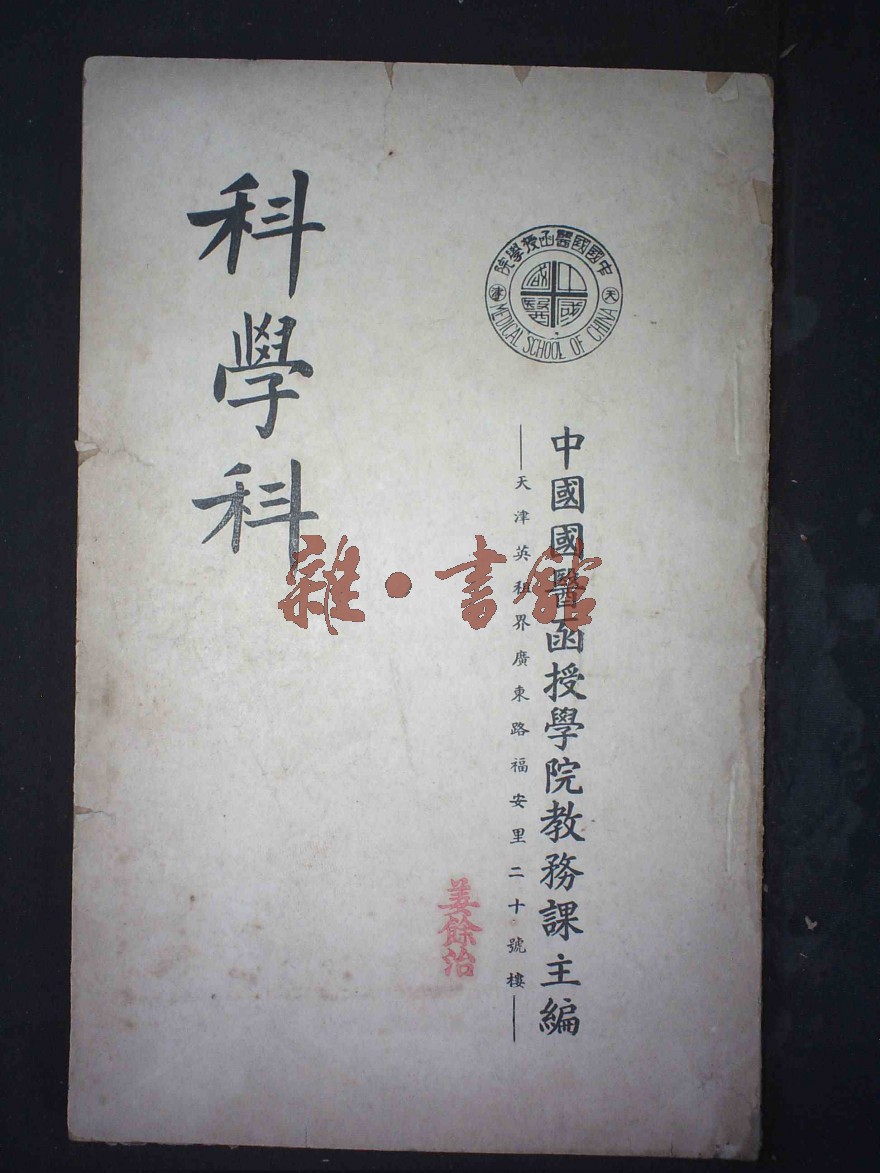 中國國醫函授學院
天 津
MEDICAL SCHOOL OF CHINA
中國國醫
中國國醫函授學院教務課主編
天津英租界廣東路福安里二十號樓
科學科
姜餘治
雜·書館